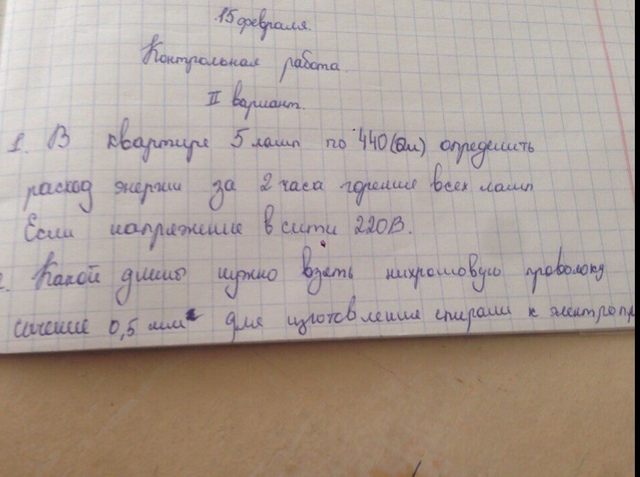 15 февраля.
Контрольная работа.
II вариант.
1. В квартире 5 ламп по 440(Ом) определить
расход энергии за 2 часа горение всех ламп
Если напряжение в сити 220В.
2. Какой длины нужно взять нихромовую проволоку
сечение 0,5 мм² для изготовление спирали к электропл